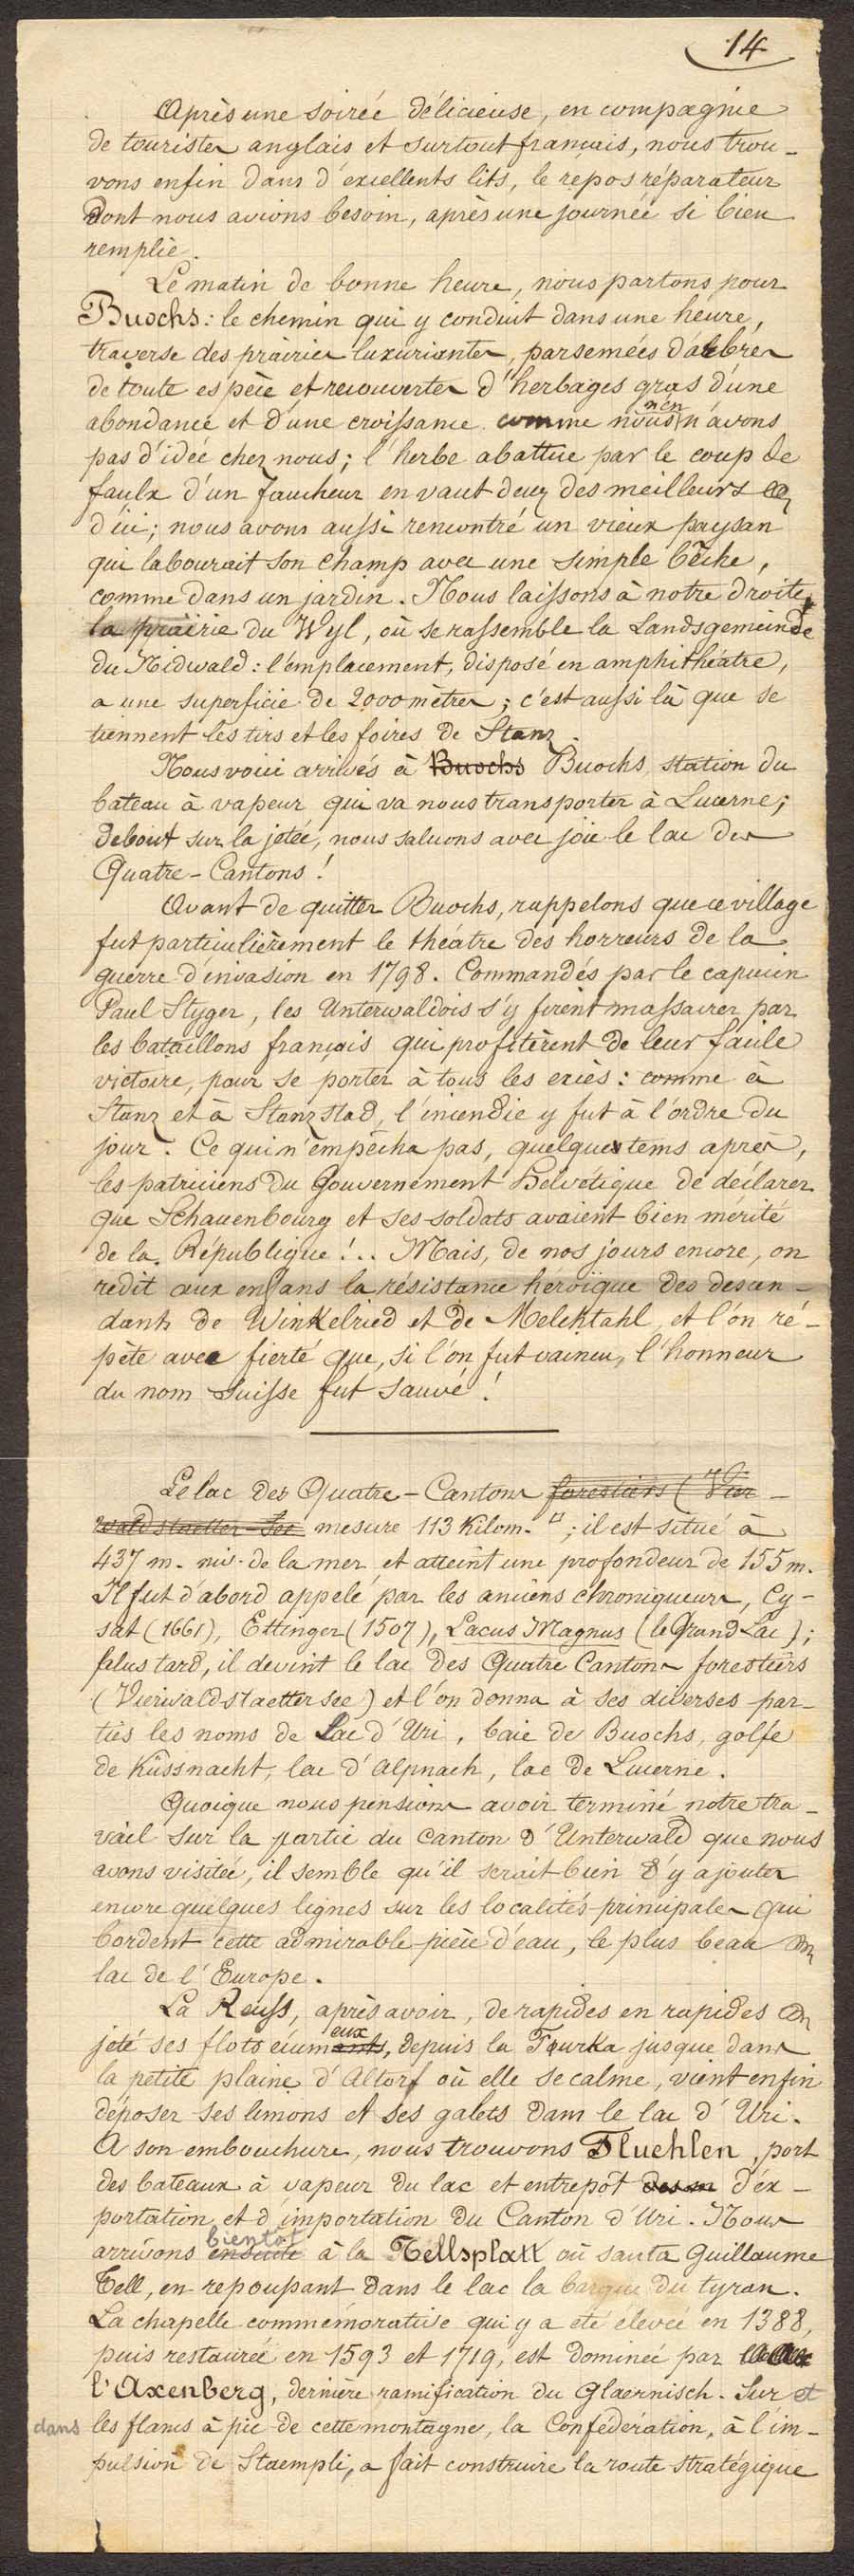 14
Après une soirée délicieuse, en compagnie
de touristes anglais et surtout français, nous trou-
vons enfin dans d'excellents lits, le repos réparateur
dont nous avions besoin, après une journée si bien
remplie.
Le matin de bonne heure, nous partons pour
Buochs : le chemin qui y conduit dans une heure,
traverse des prairies luxuriantes, parsemées d'arbres
de toute espèce et recouvertes d'herbages gras d'une
abondance et d'une croissance comme nous n'en n'avons
pas d'idée chez nous ; l'herbe abattue par le coup de
faulx d'un faucheur en vaut deux des meilleurs
d'ici ; nous avons aussi rencontré un vieux paysan
qui labourait son champ avec une simple bêche,
comme dans un jardin. Nous laissons à notre droite,
la prairie du Wyl, où se rassemble la Landsgemeinde
du Nidwald : l'emplacement, disposé en amphithéatre,
a une superficie de 2000 mètres ; c'est aussi là que se
tiennent les tirs et les foires de Stanz.
Nous voici arrivés à Buochs Buochs, station du
bateau à vapeur qui va nous transporter à Lucerne ;
debout sur la jetée, nous saluons avec joie le lac des
Quatre-Cantons !
Avant de quitter Buochs, rappelons que ce village
fut particulièrement le théâtre des horreurs de la
guerre d'invasion en 1798. Commandés par le capucin
Paul Styger, les Unterwaldois s'y firent massacrer par
les bataillons français qui profitèrent de leur facile
victoire, pour se porter à tous les excès : comme à
Stanz et à Stanzstad, l'incendie y fut à l'ordre du
jour. Ce qui n'empêcha pas, quelques tems après,
les patriciens du Gouvernement Helvétique de déclarer
que Schauenbourg et ses soldats avaient bien mérité
de la République !.. Mais, de nos jours encore, on
redit aux enfans la résistance héroïque des descen-
dants de Winkelried et de Melchtahl, et l'on ré-
pète avec fierté que, si l'on fut vaincu, l'honneur
du nom Suisse fut sauvé !
Le lac des Quatre-Cantons forestiers (Vier-
waldstaetter-See mesure 113 Kilom. □ ; il est situé à
437 m. niv. de la mer et atteint une profondeur de 155 m.
Il fut d'abord appelé par les anciens chroniqueurs, Cy-
sat (1661), Ettinger (1507), Lacus Magnus (le Grand Lac) ;
plus tard, il devint le lac des Quatre Cantons forestiers
(Vierwaldstaettersee) et l'on donna à ses diverses par-
ties les noms de Lac d'Uri, baie de Buochs, golfe
de Küssnacht, lac d'Alpnach, lac de Lucerne.
Quoique nous pensions avoir terminé notre tra-
vail sur la partie du Canton d'Unterwald que nous
avons visitée, il semble qu'il serait bien d'y ajouter
encore quelques lignes sur les localités principales qui
bordent cette admirable pièce d'eau, le plus beau
lac de l'Europe.
La Reuss, après avoir, de rapides en rapides
jeté ses flots écumants, eux depuis la Fourka jusque dans
la petite plaine d'Altorf où elle se calme, vient enfin
déposer ses limons et ses galets dans le lac d'Uri.
A son embouchure, nous trouvons Fluehlen, port
des bateaux à vapeur du lac et entrepôt des m d'ex-
portation et d'importation du Canton d'Uri. Nous
arrivons ensuite bientôt à la Tellsplatt où sauta Guillaume
Tell, en repoussant dans le lac la barque du tyran.
La chapelle commémorative qui y a été élevée en 1388,
puis restaurée en 1593 et 1719, est dominée par
l'Axenberg, dernière ramification du Glaernisch. Sur et
dans les flancs à pic de cette montagne, la Confédération, à l'im-
pulsion de Staempli, a fait construire la route stratégique